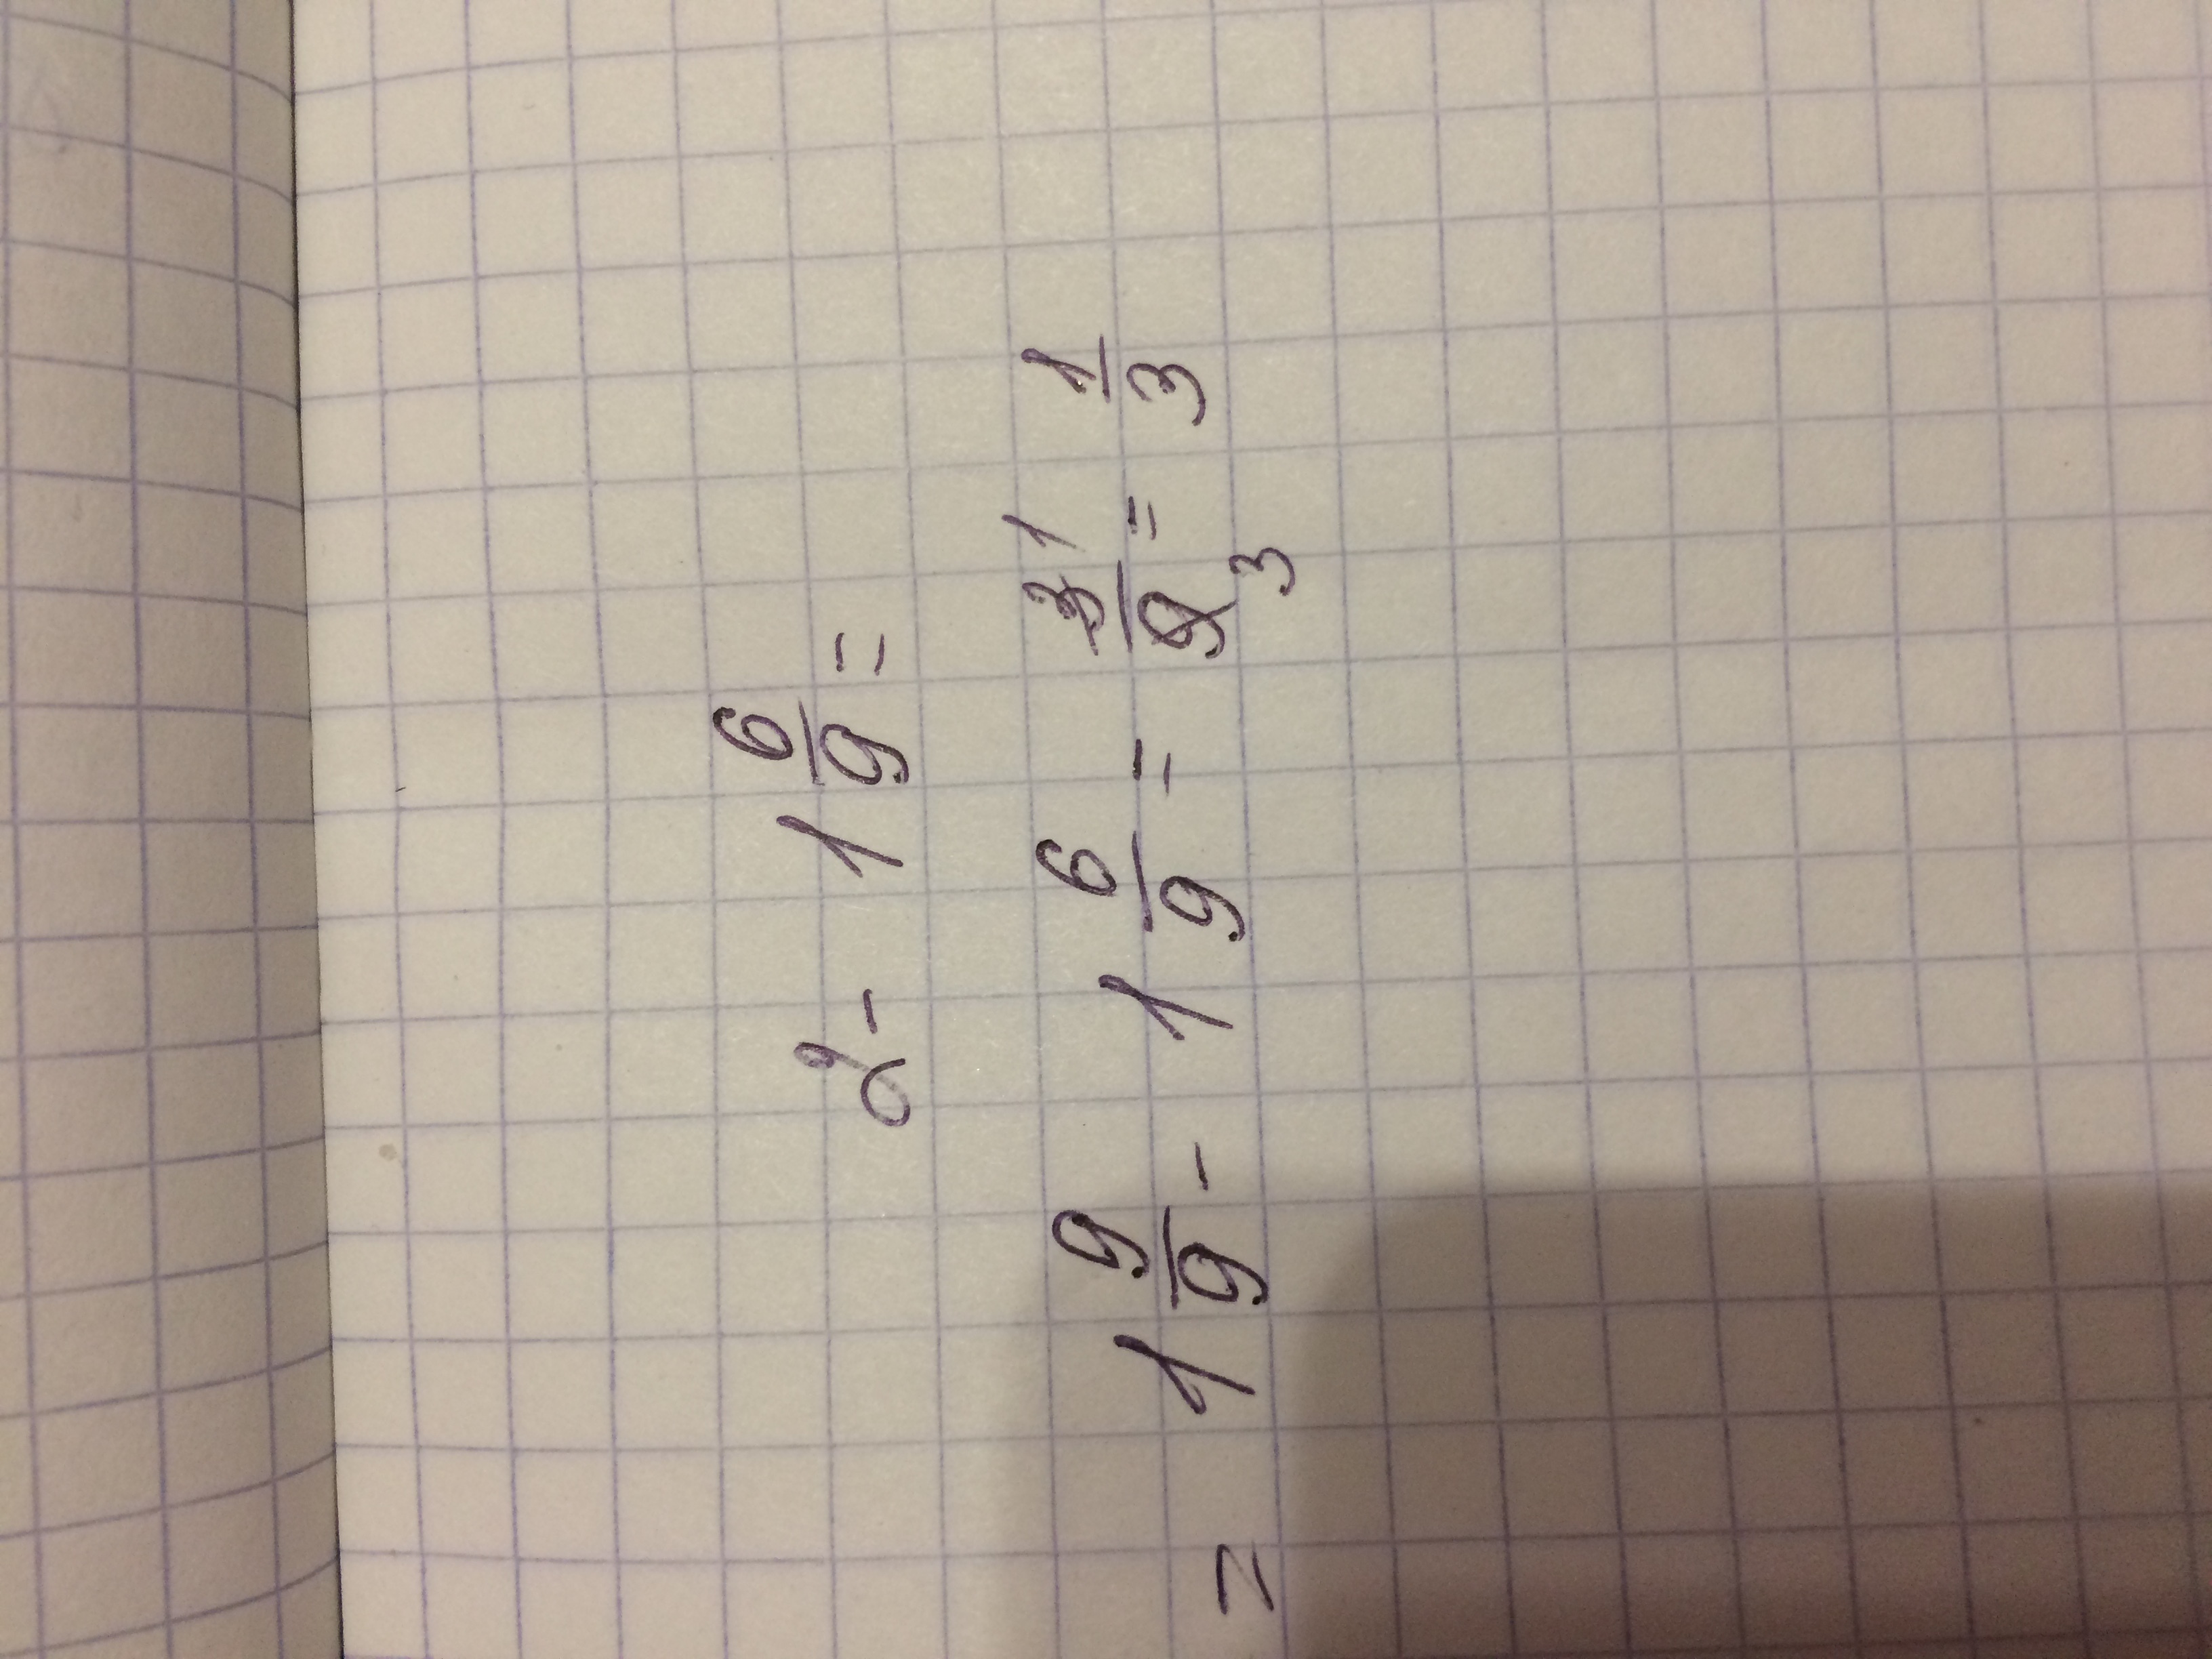 2 - 1 6/9 =
= 1 9/9 - 1 6/9 = 3/9 1 3 = 1/3